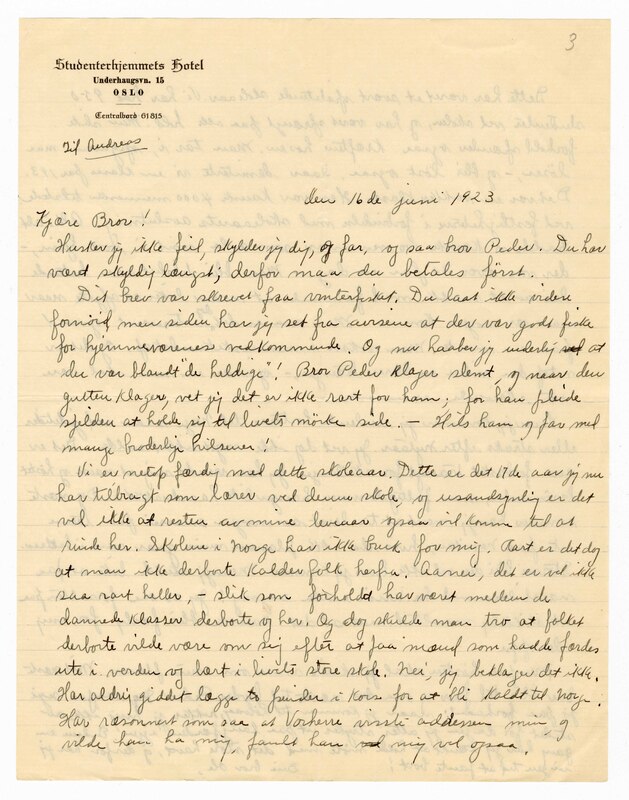 3
Studenterhjemmets Hotel
Underhaugsvn. 15
OSLO
Centralbord 61815
Til Andreas
den 16de juni 1923
Kjære Bror!
Husker jeg ikke feil, skylder jeg dig, og far, og saa bror Peder. Du har
været skyldig længst; derfor maa du betales först.
Dit brev var skrevet fra vinterfisket. Du laat ikke videre
fornöid men siden har jeg set fra aviserne at der var godt fiske
for hjemmeværenes vedkommende. Og nu haaber jeg inderlig at
du var blandt "de heldige"! Bror Peder klager slemt, og naar den
gutten klager, vet jeg det er ikke rart for ham; for han pleide
sjelden at holde sig til livets mörke side. — Hils ham og far med
mange broderlige hilsener!
Vi er netop færdig med dette skoleaar. Dette er det 17de aar jeg nu
har tilbragt som lærer ved denne skole, og usandsynlig er det
vel ikke at resten av mine leveaar ogsaa vil komme til at
rinde her. Skolene i Norge har ikke bruk for mig. Rart er det dog
at man ikke derborte kalder folk herfra. Aanei, det er vel ikke
saa rart heller, – slik som forholdet har været mellem de
dannede klasser derborte og her. Og dog skulde man tro at folket
derborte vilde være om sig efter at faa mænd som hadde færdes
ute i verden og lært i livets store skole. Nei, jeg beklager det ikke.
Har aldrig giddet lægge to pinder i kors for at bli kaldt til Norge.
Har ræsonnert som saa, at Vorherre visste addressen min, og
vilde han ha mig, fandt han mig vel ogsaa.